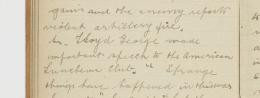 gains and the enemy reports
violent artillery fire.
Lloyd George made
important speech to the American
Luncheon Club. " Strange
things have happened in this war